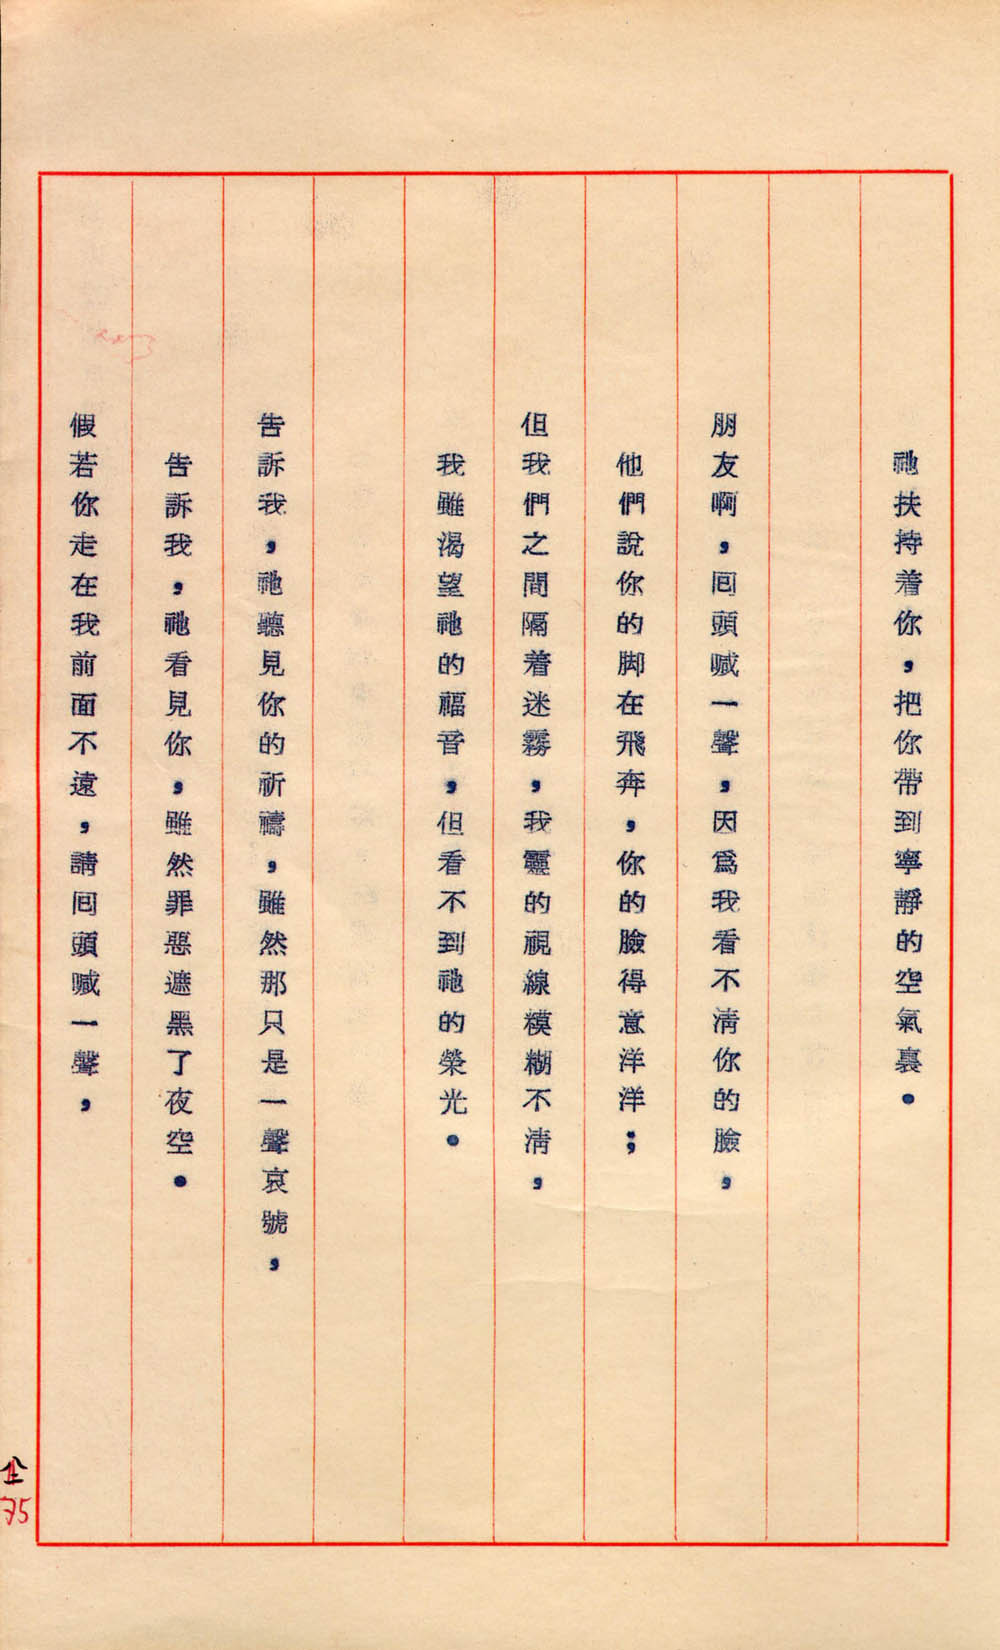 祂扶持着你，把你帶到寧靜的空氣裏。
朋友啊，回頭喊一聲，因爲我看不清你的臉，
他們說你的脚在飛奔，你的臉得意洋洋；
但我們之間隔着迷霧，我靈的視線模糊不清，
我雖渴望祂的福音，但看不到祂的榮光。
告訴我，祂聽見你的祈禱，雖然那只是一聲哀號，
告訴我，祂看見你，雖然罪惡遮黑了夜空。
假若你走在我前面不遠，請回頭喊一聲，
75